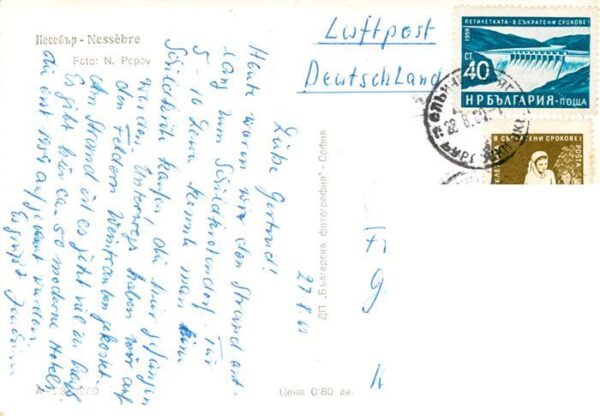 Несебър - Nessèbre
Foto: N. Popov
Luftpost
Deutschland
ПЕТИЛЕТКАТА - В СЪКРАТЕНИ СРОКОВЕ!
1959
СТ.
40
НР БЪЛГАРИЯ · ПОЩА
В СЪКРАТЕНИ СРОКОВЕ!
POSTA
27.8.60
Liebe Gertrud!
Heute waren wir den Strand ent-
lang zum Schildkrötendorf. Für
5 - 10 Lewa kann man eine
Schildkröte kaufen, die hier gefangen
werden. Unterwegs haben wir auf
den Feldern Weintrauben gekostet.
Am Strand ist es jetzt viel zu heiß.
Es gibt hier ca. 50 moderne Hotels,
die erst 1959 aufgebaut wurden.
Es grüßt Joachim
ДП „Българска фотография" - София
Цена 0·80 лв.